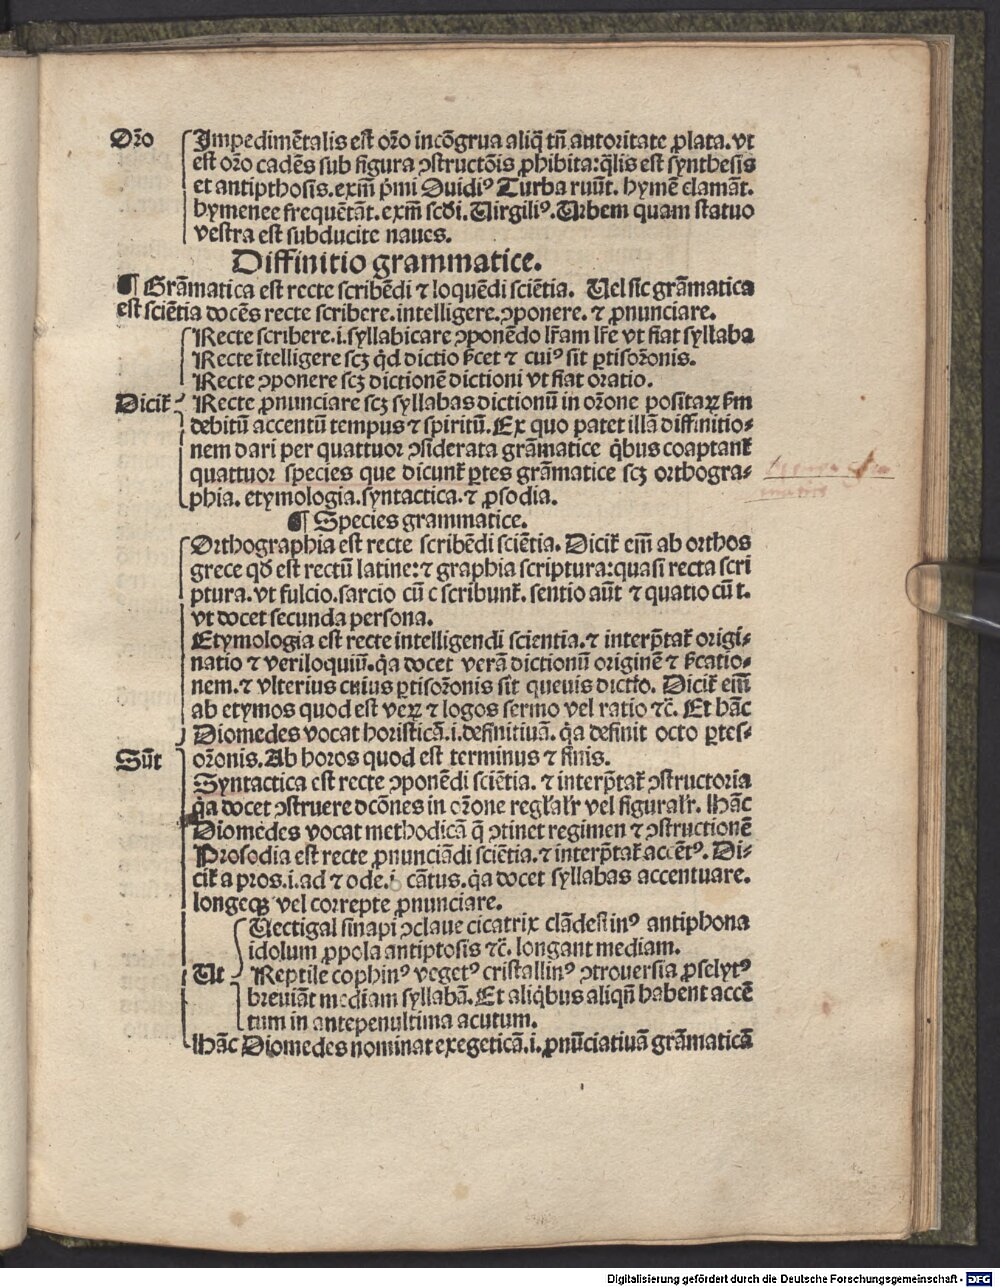 Oŕo Impedimētalis est oŕo incōgrua aliq̄ tn̄ autoritate ꝓlata. vt
est oŕo cadēs sub figura ↄstructōis ꝓhibita: q̄lis est synthesis
et antipthosis. exm̄ p̄mi Ouidiꝰ Turba ruūt. hymē clamāt.
hymenee frequētāt. exm̄ scd̄i. Uirgiliꝰ. Urbem quam statuo
vestra est subducite naues.
Diffinitio grammatice.
¶ Grāmatica est recte scribēdi ⁊ loquēdi sciētia. Uel sic grāmatica
est sciētia docēs recte scribere. intelligere. ↄponere. ⁊ ꝓnunciare.
Recte scribere .i. syllabicare ↄponēdo lr̄am lr̄e vt fiat syllaba
Recte ītelligere scꝫ qd̄ dictio sꝛ̄cet ⁊ cuiꝰ sit ꝑtisoꝛ̄onis.
Recte ↄponere scꝫ dictionē dictioni vt fiat oratio.
Dicit̄ Recte ꝓnunciare scꝫ syllabas dictionū in oꝛ̄one positaꝝ sm̄
debitū accentū tempus ⁊ spiritū. Ex quo patet illā diffinitio⸗
nem dari per quattuor ↄsiderata grāmatice qͥbus coaptant̄
quattuor species que dicunt̄ ꝑtes grāmatice scꝫ orthogra⸗
phia. etymologia. syntactica. ⁊ ꝓsodia.
¶ Species grammatice.
Orthographia est recte scribēdi sciētia. Dicit̄ em̄ ab orthos
grece qd̄ est rectū latine: ⁊ graphia scriptura: quasi recta scri
ptura. vt fulcio. sarcio cū c scribunt̄. sentio aūt ⁊ quatio cū t.
vt docet secunda persona.
Etymologia est recte intelligendi scientia. ⁊ interp̄tat̄ origi⸗
natio ⁊ veriloquiū. qͣa docet verā dictionū originē ⁊ sꝛ̄catio⸗
nem. ⁊ vlterius cuius ꝑtisoꝛ̄onis sit queuis dictio. Dicit̄ em̄
ab etymos quod est veꝝ ⁊ logos sermo vel ratio ⁊c̄. Et hāc
Diomedes vocat horisticā .i. definitiuā. qͣa definit octo ꝑtes⸗
Sūt oꝛ̄onis. Ab horos quod est terminus ⁊ finis.
Syntactica est recte ↄponēdi sciētia. ⁊ interp̄tat̄ ↄstructoria
qͣa docet ↄstruere dcōnes in oꝛ̄one regl̄al'r vel figural'r. Hāc
Diomedes vocat methodicā q̄ ↄtinet regimen ⁊ ↄstructionē
Prosodia est recte ꝓnunciādi sciētia. ⁊ interp̄tat̄ accētꝰ. Di⸗
cit̄ a pros .i. ad ⁊ ode .i. cātus. qͣa docet syllabas accentuare.
longeqꝫ vel correpte ꝓnunciare.
Uectigal sinapi ↄclaue cicatrix clādestinꝰ antiphona
idolum ꝓpola antiptosis ⁊c̄. longant mediam.
Ut Reptile cophinꝰ vegetꝰ cristallinꝰ ↄtrouersia ꝓselytꝰ
breuiāt mediam syllabā. Et aliqͥbus aliqn̄ habent accē
tum in antepenultima acutum.
Hāc Diomedes nominat exegeticā .i. ꝓnūciatiuā grāmaticā
Digitalisierung gefördert durch die Deutsche Forschungsgemeinschaft - DFG